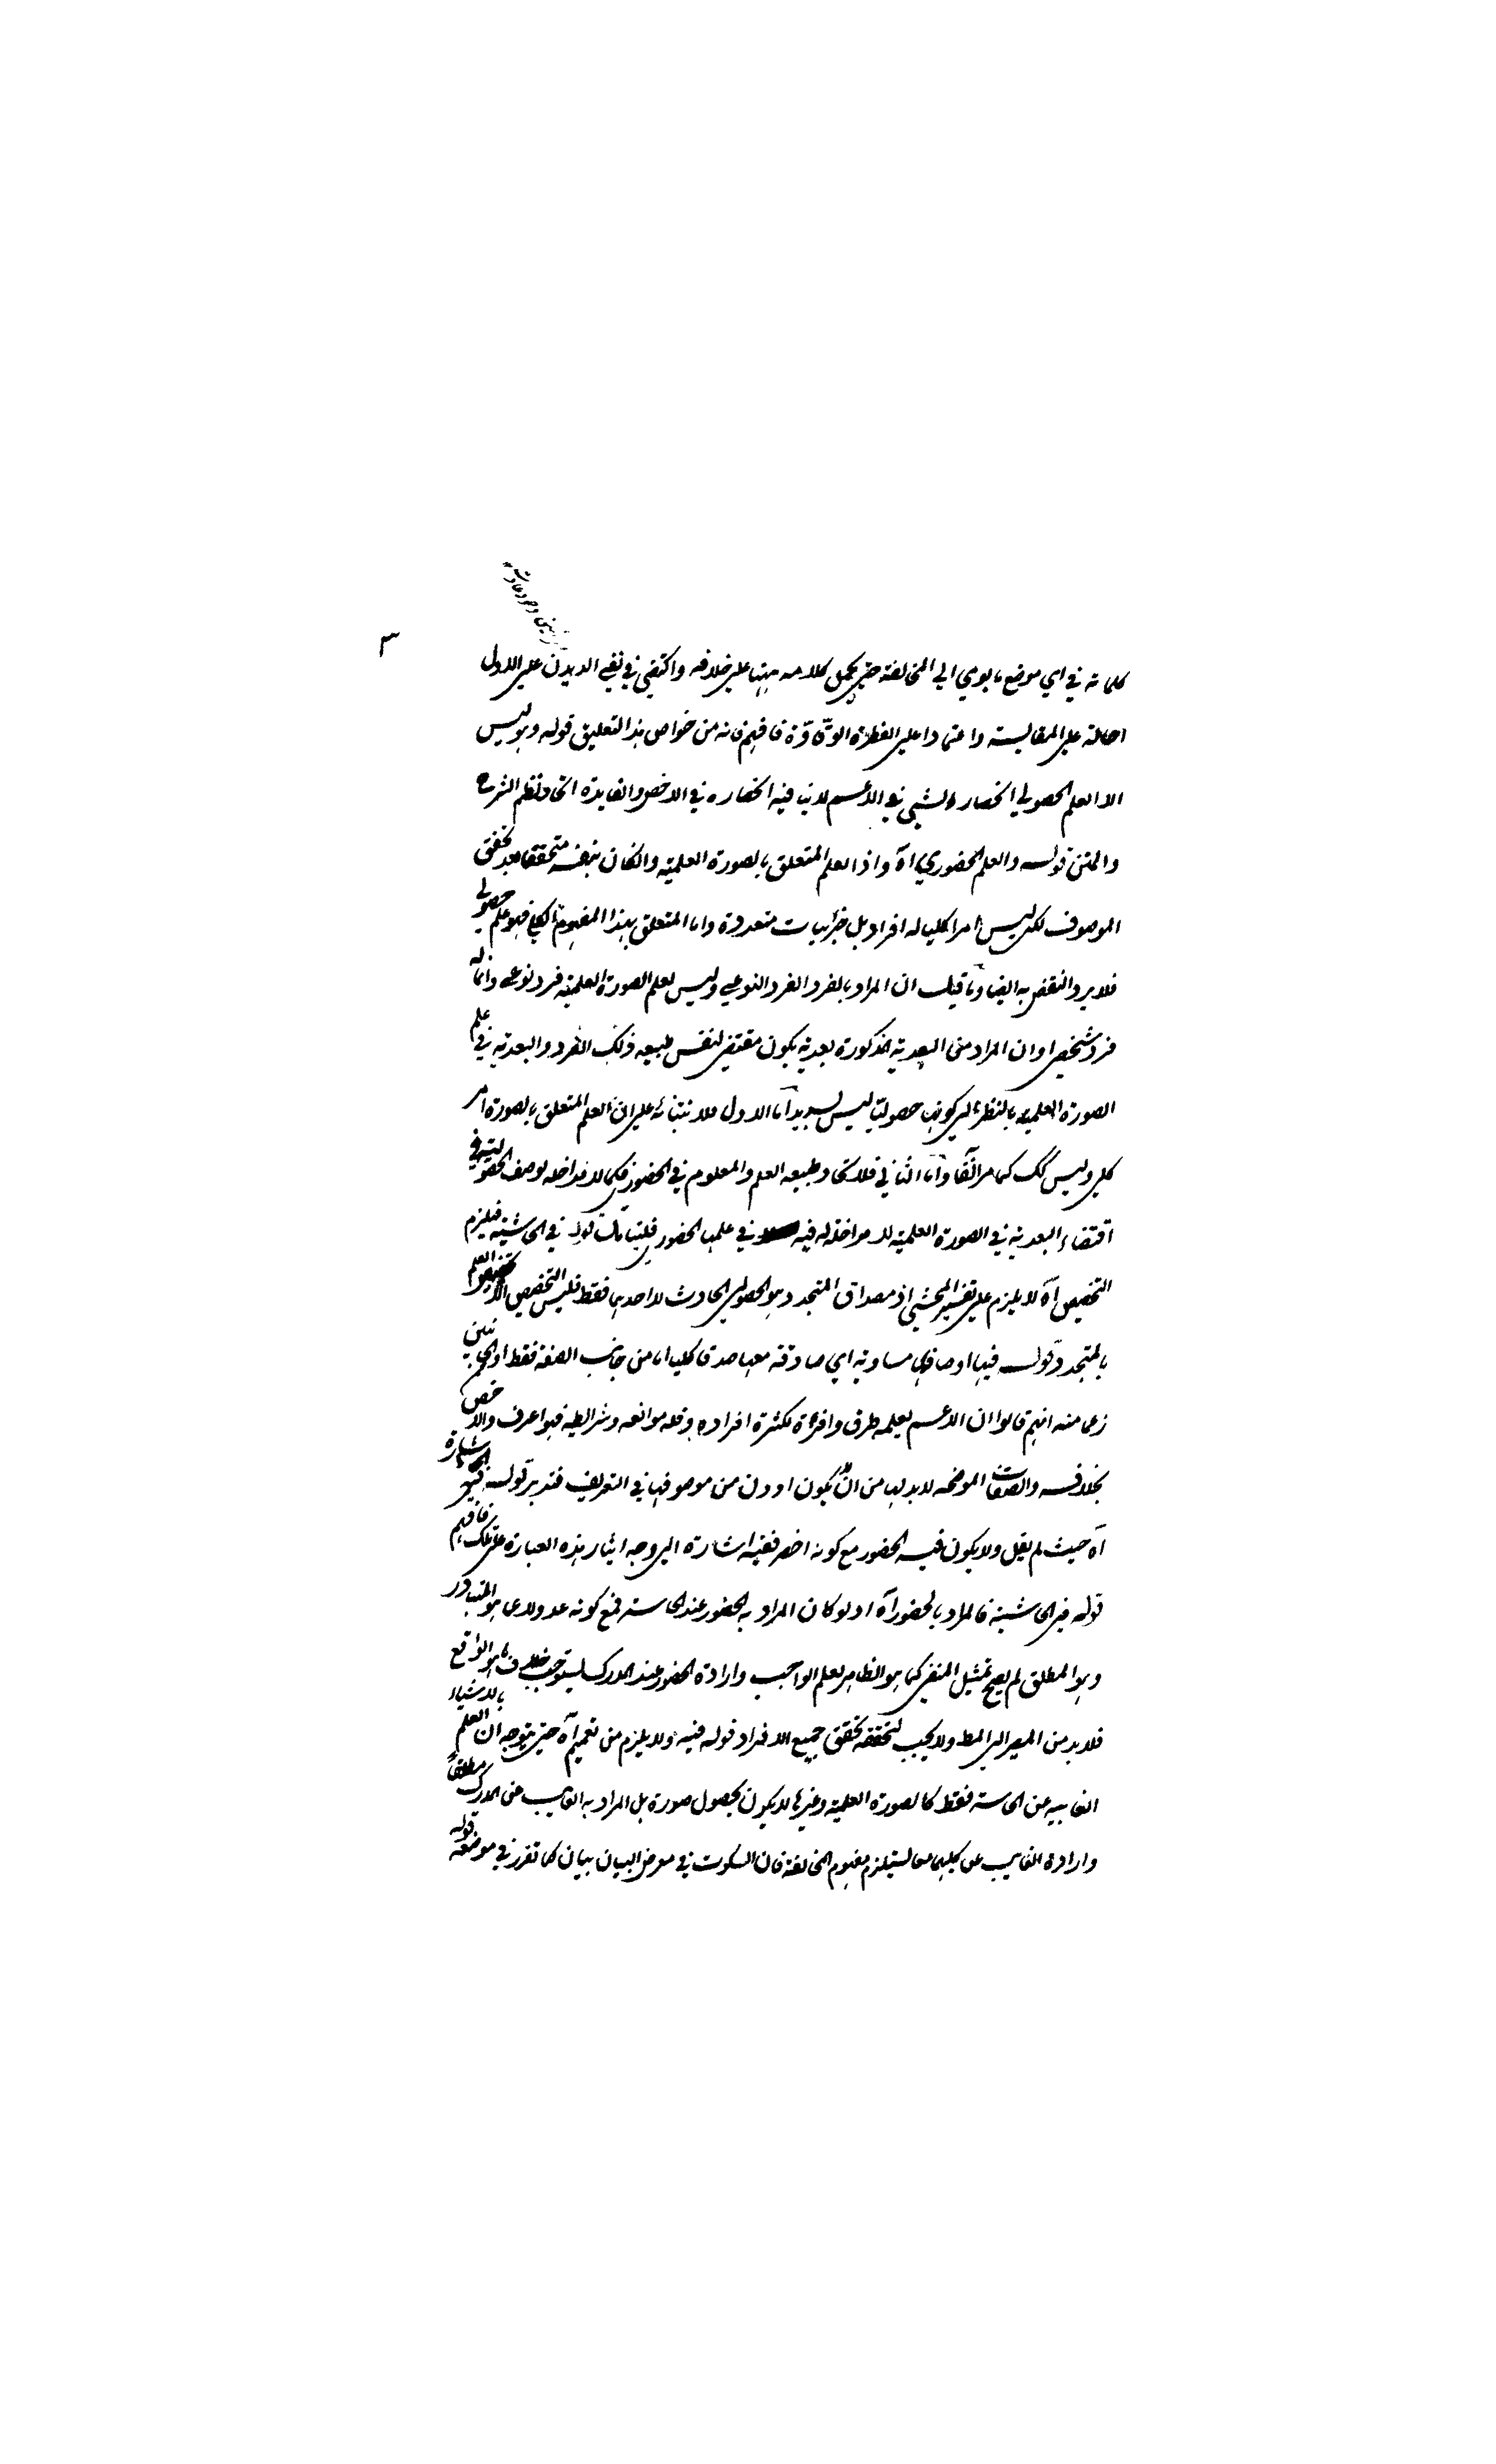 ٣
كلماته في اي موضع ما يومي الي المخالفة حتي يحمل كلامه ههنا علي خلافه واكتفي في نفي البديهين علي الاول
احالة علي المقايسة واعتمادا علي الفطرة الوقّادة فافهم فانه من خواص هذا التعليق قوله وهو ليس
الا العلم الحصولي انحصار الشيي في الاعم لا ينافيه انحصاره في الاخص والفايدة اتحاد نظم الشرح
والمتن قوله والعلم الحضوري اه واذ العلم المتعلق بالصورة العلمية وان كان بنفسه متحققا بعد تحقق
الموصوف لكن ليس امرا كليا له افراد بل جزئيات متعددة واما المتعلق بهذا المفهوم الكلي فهو علم حصولي
فلا يرد النقض به ايضا وما قيل ان المراد بالفرد الفرد النوعي وليس لعلم الصورة العلمية فرد نوعي وانما له
فرد شخصي او ان المراد من البعدية المذكورة بعدية يكون مقتضي لنفس طبيعه ذلك الفرد والبعدية في علم
الصورة العلمية بالنظر الي كونها حصوليا ليس بسديد اما الاول فلابتنائه علي ان العلم المتعلق بالصورة امر
كلي وليس كك كما مر آنفا واما الثاني فلاتحاد طبيعه العلم والمعلوم في الحضوري فكما لا مداخله لوصف الحصولية في
اقتضاء البعدية في الصورة العلمية لا مداخلة له فيه في علمها الحضوري فليتامل قوله في الحاشية فيلزم
التخصيص آه لا يلزم علي تفسير المحشي اذ مصداق المتجدد هو الحصولي الحادث لا احدهما فقط فليس التخصيص الا تخصيص العلم
بالمتجدد قوله فيها اوصافها مساوية اي صادقة معها صدقا كليا اما من جانب الصفة فقط او الجانبين
زعما منه انهم قالوا ان الاعم لعلمه طرق وافرة لكثرة افراده وقلة موانعه وشرايطه فهو اعرف والاخص
بخلافه والصفات الموضحه لا بد لها من ان لا يكون ادون من موصوفها في التعريف فتدبر قوله فيه اشارة
آه حيث لم يقل ولا يكون فيه الحضور مع كونه اخصر ففيه اشارة الي وجه ايثار هذه العبارة علي تلك فافهم
قوله في الحاشية فالمراد بالحضور آه اد لو كان المراد به الحضور عند الحاسة فمع كونه عدولا عما هو المتبادر
وهو المطلق لم يصح تمثيل المنفي كما هو الظاهر بعلم الواجب وارادة الحضور عند المدرك يستوجب خلاف ما هو الواقع
فلا بد من المصير الي المط ولا يجب لتحققه تحقق جميع الافراد قوله فيه ولا يلزم من تعميم آه حتي يتوجه ان العلم بالاشياء
الغايبة عن الحاسة فقط كالصورة العلمية وغيرها لا يكون بحصول صورة بل المراد به الغايب عن المدرك مطلقاً
وارادة الغايب عن كليهما معا يستلزم مفهوم المخالفة فان السكوت في معرض البيان بيان كما تقرر في موضعه قوله